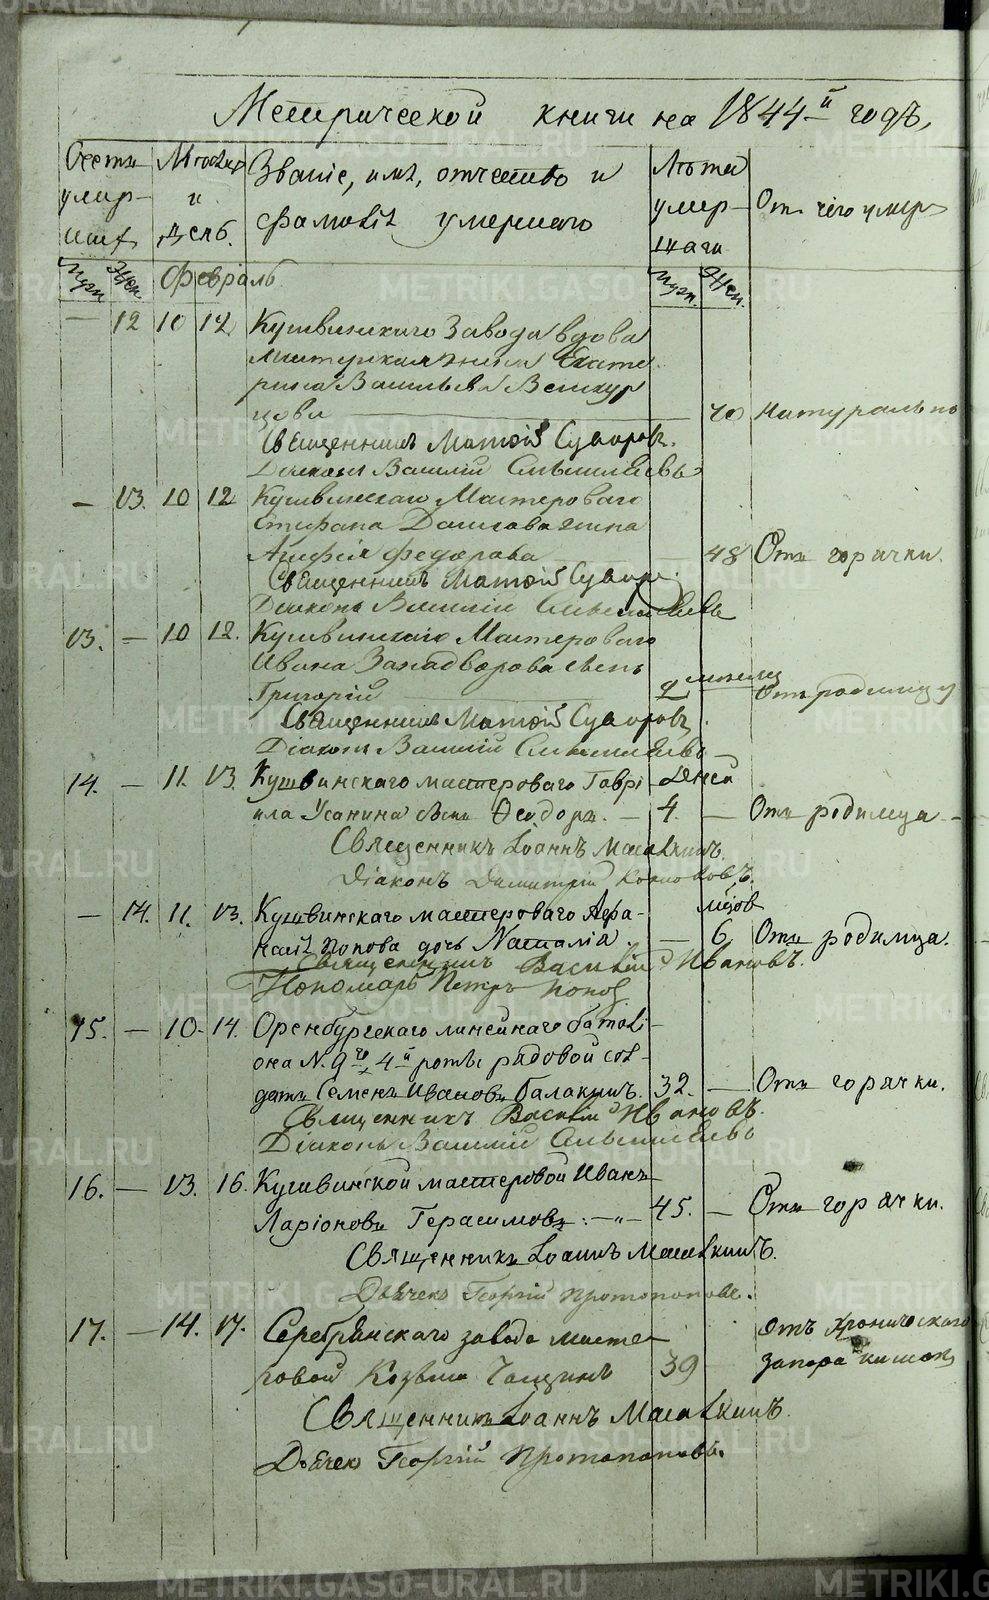 Метрической книги на 1844й годъ,
Счетъ умер- ших
Месяцъ и день.
Званіе, имя, отчество и фамилія умершаго
Лѣта умер- шаго
Отъ чего умеръ
Муж. Жен. Февраль Муж. Жен.
— 12 10 12 Кушвинскаго Завода вдова
Екате-
рина Васильева
цова — 70 Натурально
Священникъ Матѳій Суворовъ.
Діаконъ Василій
— 13. 10 12 Кушвинскаго Мастероваго
Стефана жена
Федорова — 48 Отъ горячки.
Священникъ Матѳій Суворо.
Діаконъ Василій
13. — 10 12. Кушвинскаго Мастероваго
Ивана Западворова сынъ
Григорій — 2 месяц Отъ родимцу
Священникъ Матѳій Суворовъ.
Діаконъ Василій
14. — 11. 13. Кушвинскаго мастероваго Гаврі- Дней
ила Усанина сынъ Ѳеодоръ. — 4. — Отъ родимца —
Священникъ Іоаннъ
Діаконъ Димитрій
— 14. 11. 13. Кушвинскаго мастероваго Афа- мцов
насія Попова дочь Наталія. — 6 Отъ родимца.
Священникъ Василій Ивановъ.
Пономарь Петръ Попов
15. — 10. 14. Оренбургскаго линейнаго батали-
она N. 9го, 4й роты рядовой сол-
датъ Семенъ Ивановъ Балакинъ. 32. — Отъ горячки.
Священникъ Василій Ивановъ.
Діаконъ Василій
16. — 13. 16. Кушвинской мастеровой Иванъ
Ларіоновъ Герасимовъ. —„— 45. — Отъ горячки.
Священникъ Іоаннъ
Дьячекъ Георгій Протопоповъ.
17. — 14. 17. Серебрянскаго завода масте-
ровой Козьма 39 Отъ хроническаго
запора кишокъ
Священникъ Іоаннъ
Дьячекъ Георгій Протопоповъ.
METRIKI.GASO-URAL.RU